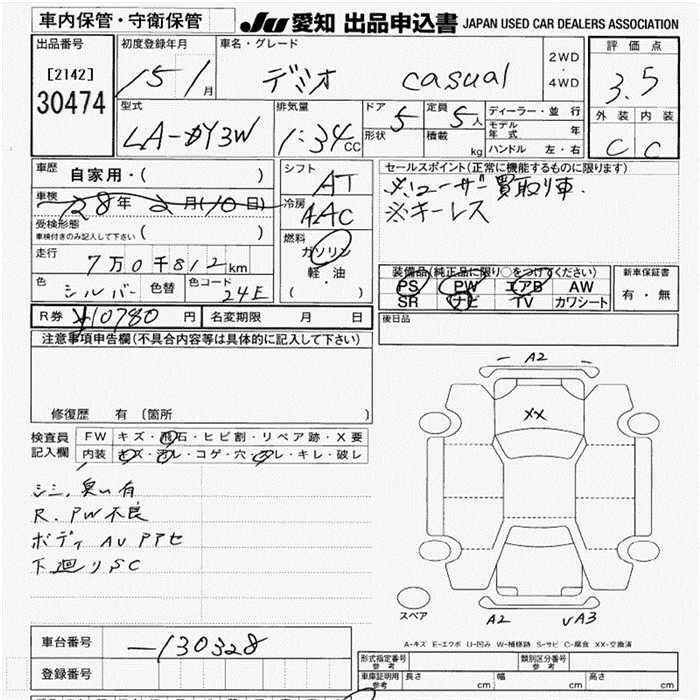 車内保管・守衛保管
JU 愛知 出品申込書 JAPAN USED CAR DEALERS ASSOCIATION
出品番号
[2142]
30474
初度登録年月
15 1 月
車名・グレード
デミオ casual
2WD
・
4WD
評価点
3.5
外装 内装
C C
型式
LA-DY3W
排気量
1:34 CC
ドア 5
形状
定員 5 人
積載 kg
ディーラー・並行
モデル年式 年
ハンドル 左・右
車歴 自家用・( )
車検 28年 2月(10日)
受検形態
車検付きのみ記入して下さい ( )
走行 7万0千812km
色 シルバー 色替 色コード 24E
シフト AT
冷房 AAC
燃料
ガソリン
軽・油
( )
セールスポイント(正常に機能するものに限ります)
※ユーザー買取り車.
※キーレス
装備品(純正品に限り○をつけてください)
PS PW エアB AW
SR ナビ TV カワシート
新車保証書
有・無
R券 ¥10780 円 名変期限 月 日
後日品
注意事項申告欄(不具合内容等は具体的に記入して下さい)
修復歴 有 〔箇所 〕
検査員
記入欄
FW キズ・飛石・ヒビ割・リペア跡・X要
内装 キズ・汚レ・コゲ・穴・スレ・キレ・破レ
シミ,臭い有
R.PW不良
ボディ AU PPセ
下廻りSC
A2
XX
スペア
A2 A3
A-キズ E-エクボ U-凹み W-補修跡 S-サビ C-腐食 XX-交換済
車台番号 -130328
登録番号
形式指定番号 参考
類別区分番号 参考
車庫証明用 参考 長さ cm 幅 cm 高さ cm